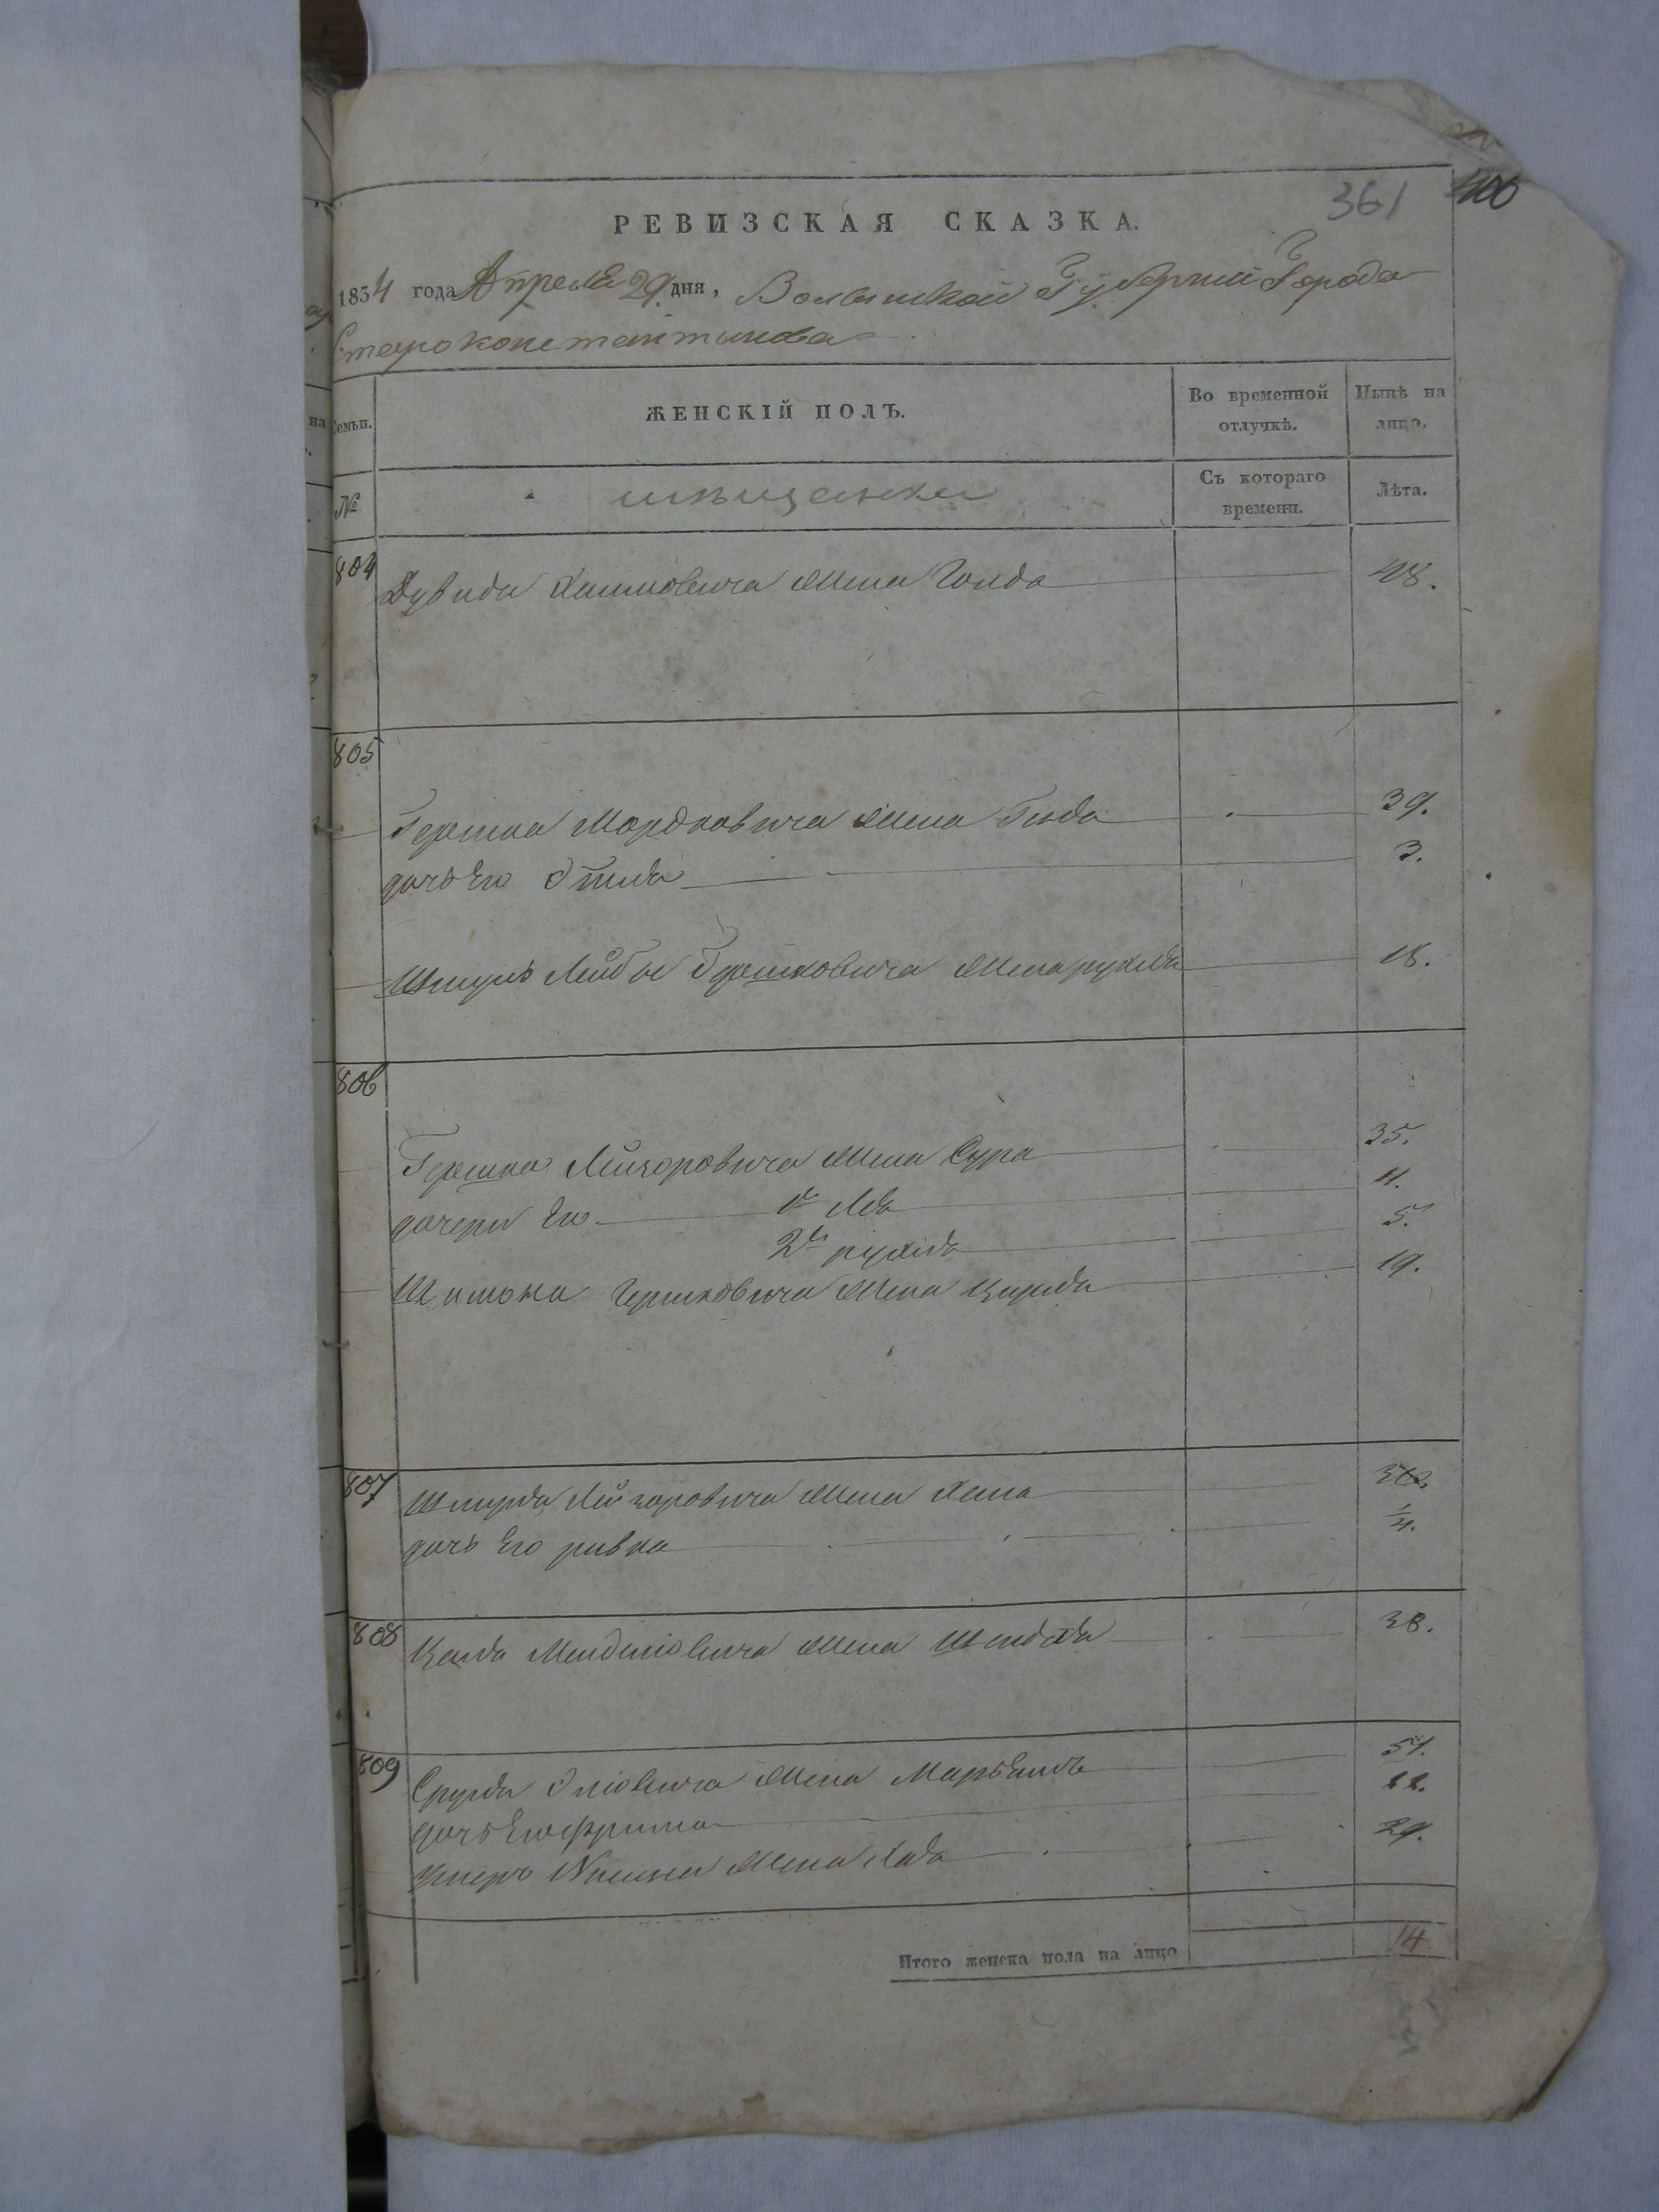 361 400
РЕВИЗСКАЯ СКАЗКА.
1834 года Апреля 29 дня, Волынской Губернии Города
Староконстантинова
Семьи. ЖЕНСКІЙ ПОЛЪ. Во временной отлучкѣ. Нынѣ на лицо.
№ мѣщанки Съ котораго времени. Лѣта.
804 Дувида жена Голда 48.
805
Гершка Мордковича жена Гитля 39.
дочь Его Этля 3.
Шмуль Лейбы Гершковича жена рухля 18.
806
Гершка Лейзоровича жена Сура 35.
дочери Его 1я Лея 11.
2я рухля 5.
Шимона Гершковича жена Цирля 19.
807 Шмуля Лейзоровича жена Хана
дочь Его ривка ¼.
808 Менделіовича жена 38.
809 Сруля жена Марьяся 51.
дочь Его фрима 22.
жена Хая 29.
Итого женска пола на лицо 14